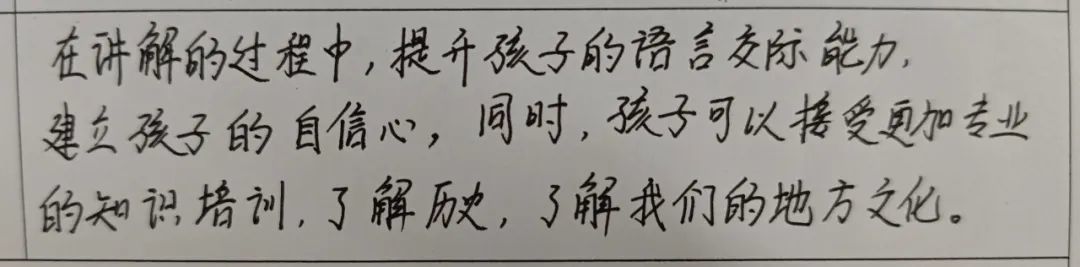 在讲解的过程中,提升孩子的语言交际能力,
建立孩子的自信心,同时,孩子可以接受更加专业
的知识培训,了解历史,了解我们的地方文化。